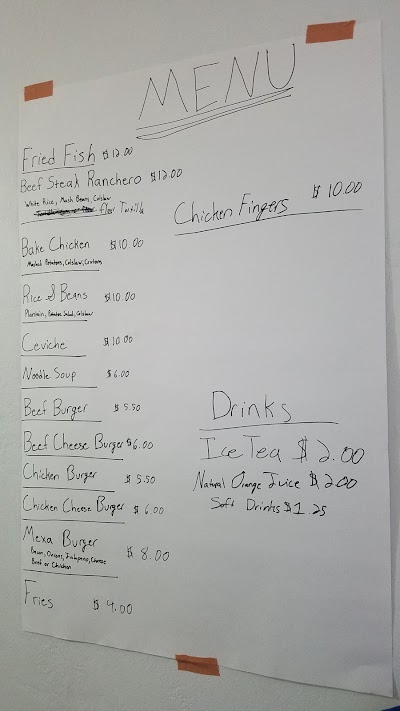 MENU
Fried Fish $12.00
Beef Steak Ranchero $12.00
White Rice, Mash Beans, Colslaw
flour Tortilla
Bake Chicken $10.00
Mashed Potatoes, Colslaw, Croutons
Rice & Beans $10.00
Plantain, Potatoe Salad, Colslaw
Ceviche $10.00
Noodle Soup $6.00
Beef Burger $5.50
Beef Cheese Burger $6.00
Chicken Burger $5.50
Chicken Cheese Burger $6.00
Mexa Burger $8.00
Bacon, Onions, Jalapeno, Cheese
Beef or Chicken
Fries $4.00
Chicken Fingers $10.00
Drinks
Ice Tea $2.00
Natural Orange Juice $2.00
Soft Drinks $1.25